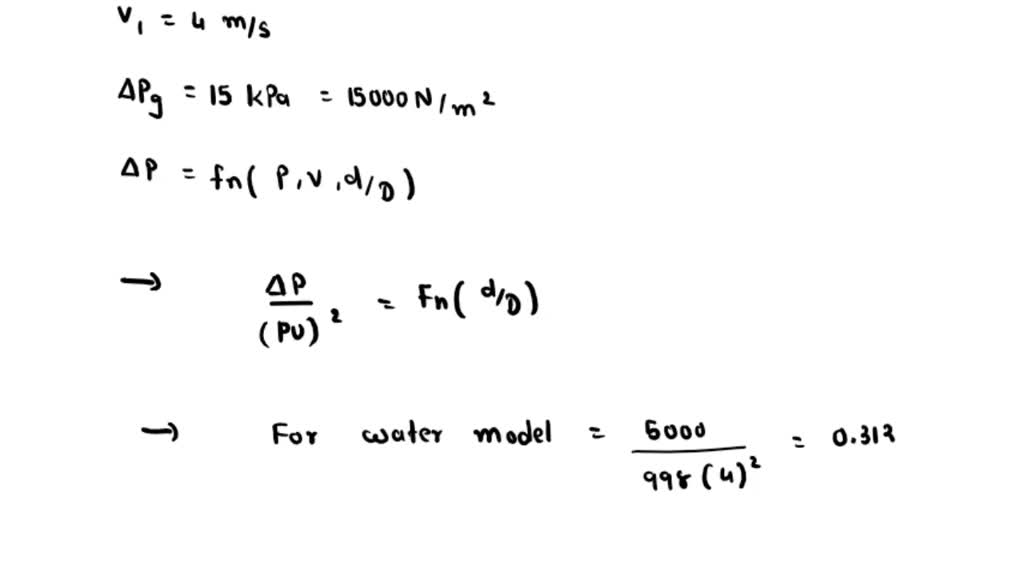 V₁ = 4 m/s
ΔPg = 15 kPa = 15000 N/m²
ΔP = fn( P, V, d/D )
→ ΔP/(PV)² = Fn( d/D )
→ For water model = 5000/998(4)² = 0.313